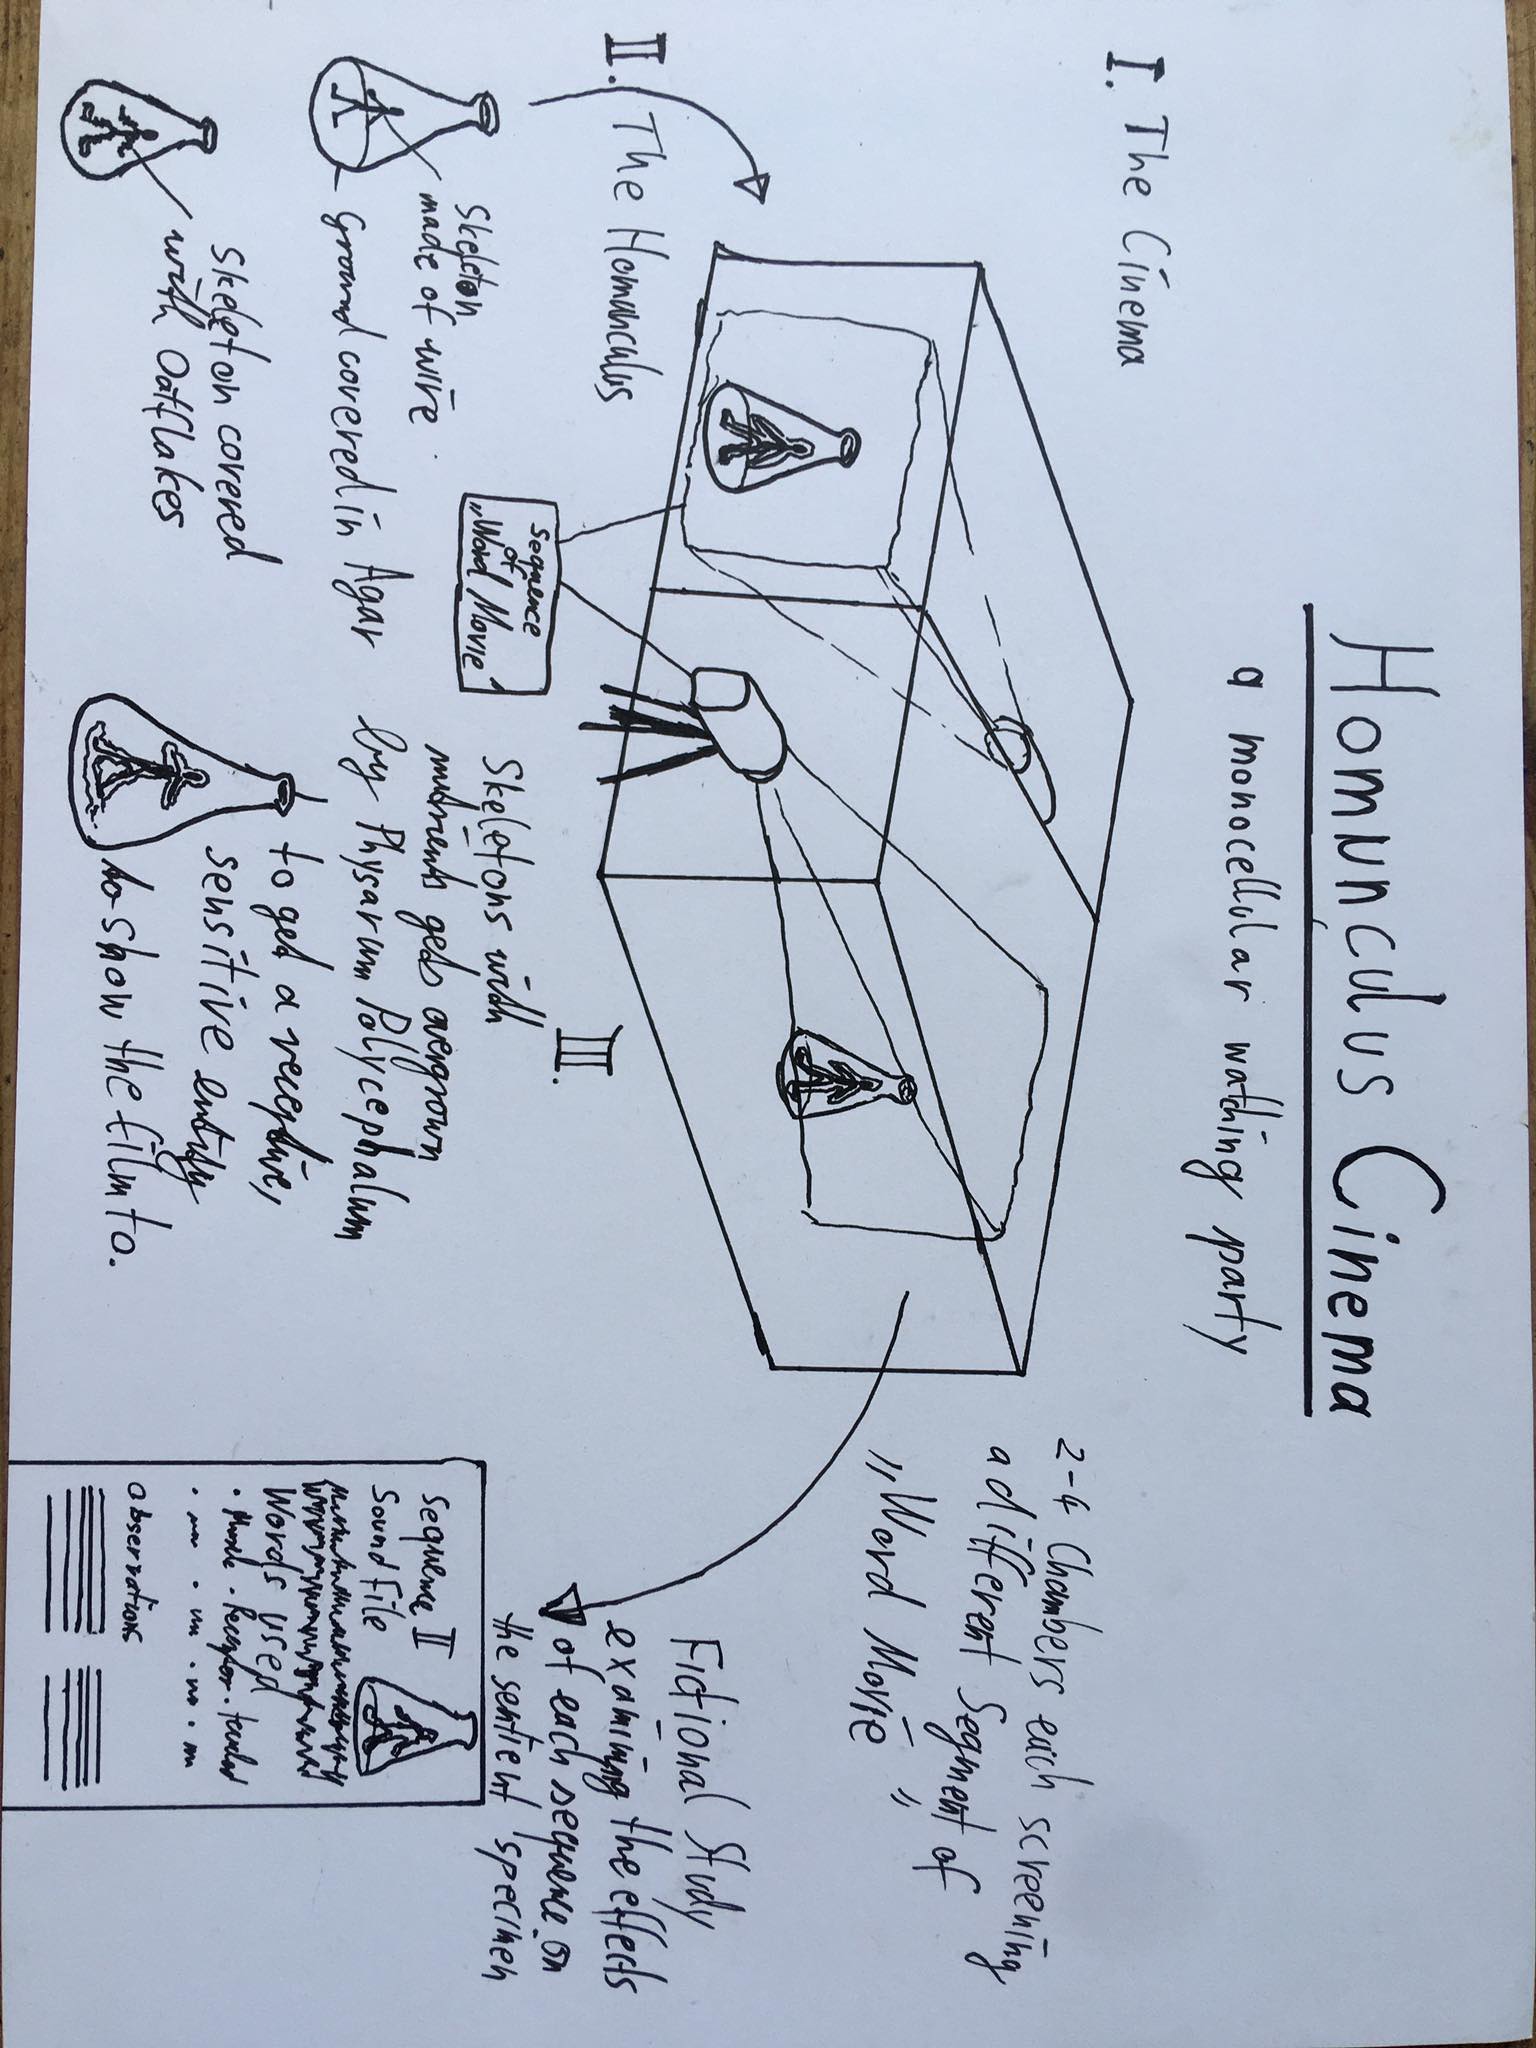 Homunculus Cinema
a monocellular watching party
I. The Cinema
2-4 Chambers each screening
a different Segment of
„Word Movie"
II. The Homunculus
Skeleton
made of wire.
Ground covered in Agar
Skeleton covered
with Oatflakes
Sequence
of
„Word Movie"
Skeletons with
nutrients gets overgrown
by Physarum Polycephalum
to get a receptive,
sensitive entity
to show the film to.
III.
Fictional Study
examing the effects
of each sequence on
the sentient specimen
Sequence II
Soundfile
Words used
observations